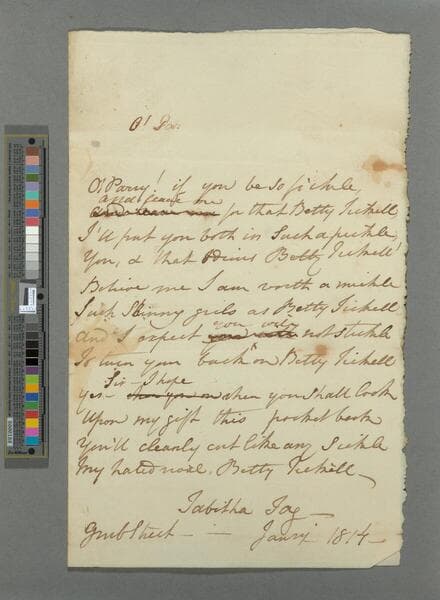 O! Par
O! Parry! if you be so fickle,
and leave me
for that Betty Tickell,
I'll put you both in such a pickle,
You, & that Betty Tickell!
Believe me I am worth a mickle
Such Skinny girls as Betty Tickell
you will
and I expect not stickle
To turn your back on Betty Tickell
Sir I hope
yes - when you shall look
Upon my gift this pocket book
You'll cleanly cut like any Sickle
My hated rival. Betty Tickell -
Tabitha Tag -
Grub Street - Janry 1814